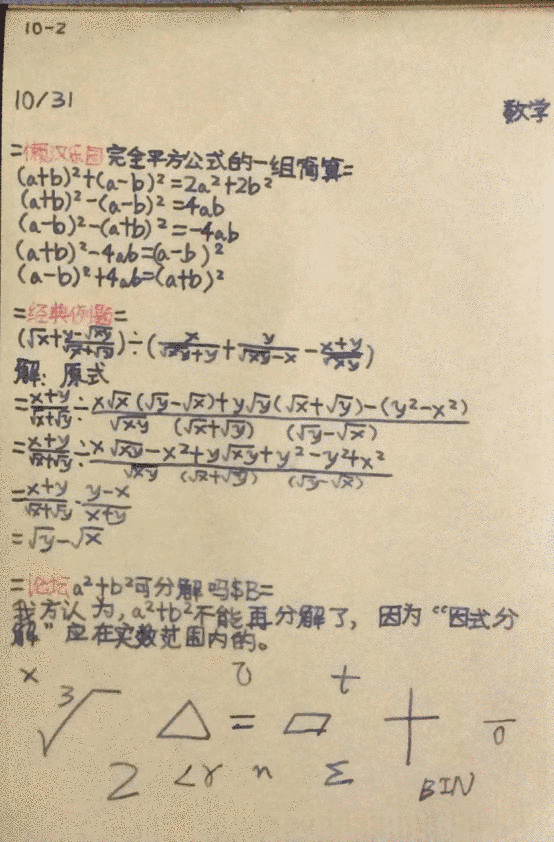 10-2
10/31
数学
=懒汉乐园 完全平方公式的一组简算=
(a+b)²+(a-b)²=2a²+2b²
(a+b)²-(a-b)²=4ab
(a-b)²-(a+b)²=-4ab
(a+b)²-4ab=(a-b)²
(a-b)²+4ab=(a+b)²
=经典例题=
(√x+(y-√xy)/(√x+√y))÷(x/(√xy+y)+y/(√xy-x)-(x+y)/√xy)
解：原式
=(x+y)/(√x+√y)÷(x√x(√y-√x)+y√y(√x+√y)-(y²-x²))/(√xy(√x+√y)(√y-√x))
=(x+y)/(√x+√y)÷(x√xy-x²+y√xy+y²-y²+x²)/(√xy(√x+√y)(√y-√x))
=(x+y)/(√x+√y)·(y-x)/(x+y)
=√y-√x
=论坛 a²+b²可分解吗$B=
我方认为，a²+b²不能再分解了，因为“因式分
解”应在实数范围内的。
x t
3√ △ = ▱ + —0
2 <r n Σ BIN